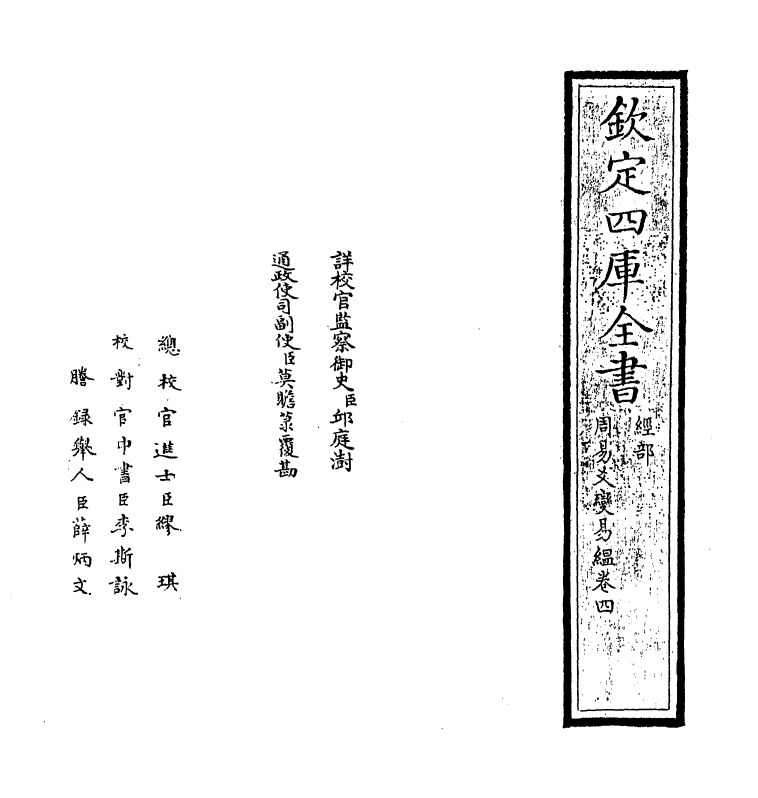 欽定四庫全書
經部
周易爻變易縕卷四
詳校官監察御史臣邱庭澍
通政使司副使臣莫瞻菉覆勘
總校官進士臣繆琪
校對官中書臣李斯詠
謄錄舉人臣薛炳文